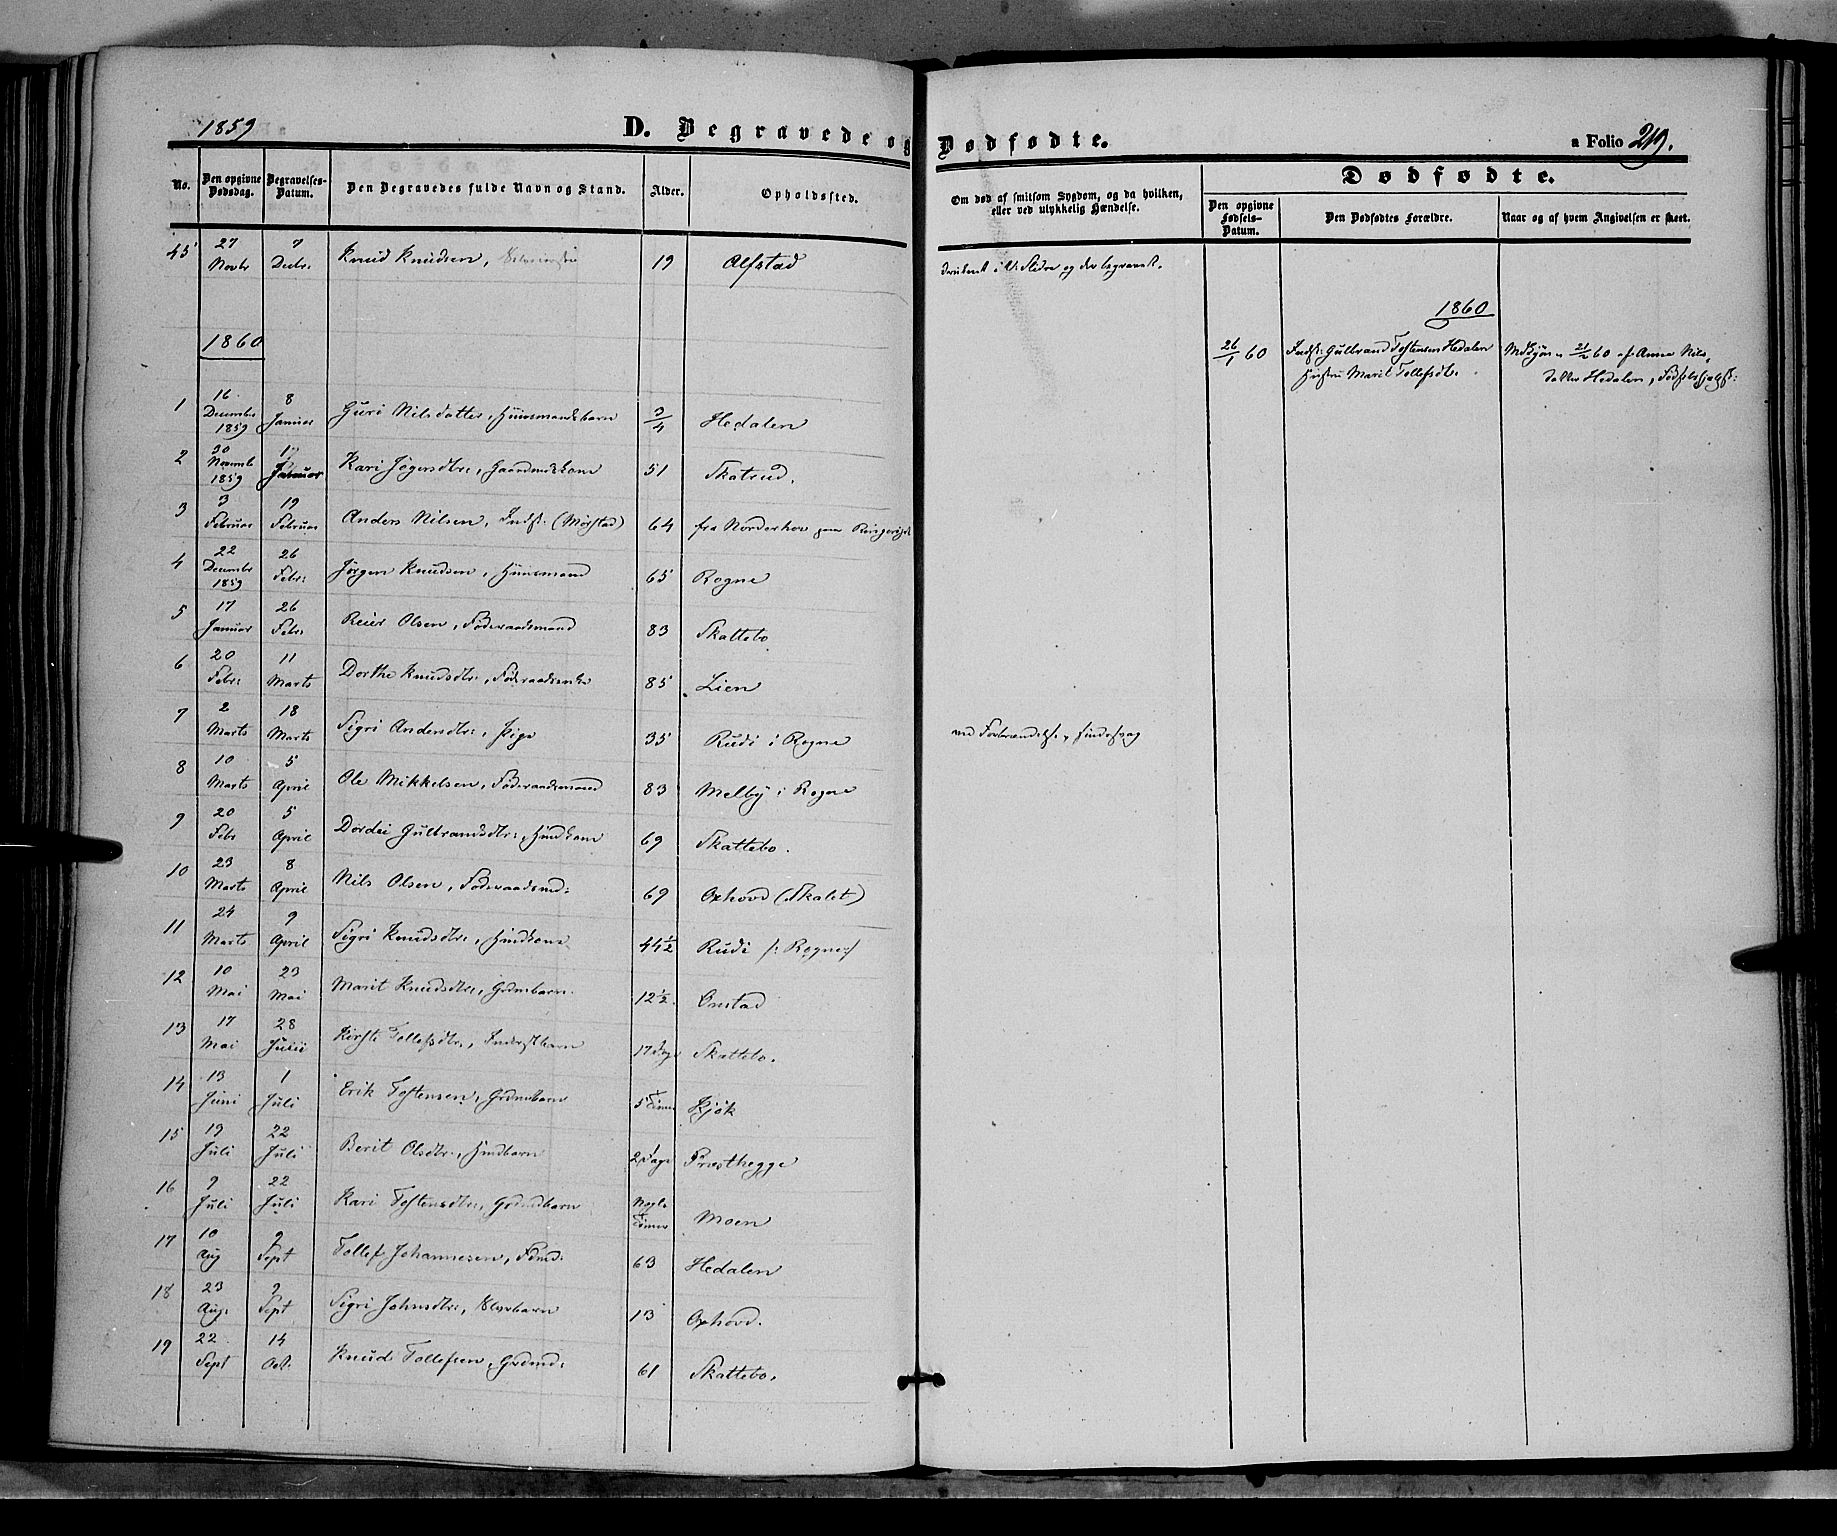 1859
D. Begravede og Dødfødte.
a Folio 219.
No.
Den opgivne Dødsdag.
Begravelses-Datum.
Den Begravedes fulde Navn og Stand.
Alder.
Opholdssted.
Om død af smitsom Sygdom, og da hvilken, eller ved ulykkelig Hændelse.
Dødfødte.
Den opgivne Fødsels-Datum.
Den Dødfødtes Forældre.
Naar og af hvem Angivelsen er skeet.
45 27 Novbr 7 Decbr: Knud Knudsen, 19 Alfstad druknet i V. Slidre og der begravet.
1860
1860
26/1 60 Indst: Gulbrand Tostensen Hedalen Hustru Marit Tollefsdtr. 21/2 60 af Anna Nils-datter Hedalen, Fødselshjelpst:
1 16 December 1859 8 Januar Guri Nilsdatter, Huusmandsbarn 3/4 Hedalen
2 30 Novemb 1859 Januar Kari Jøgersdtr:, Gaardmdskone 51 Skatrud.
3 3 Februar 19 Februar Anders Nilsen, Indst: (Mørstad) 64 fra Norderhov paa Ringerige
4 22 Decembr 1859 26 Febr: Jørgen Knudsen, Huusmand 65 Rogne
5 17 Januar 26 Febr: Reier Olsen, Føderaadsmand 83 Skattebo
6 20 Febr: 11 Marts Dorthe Knudsdtr:, Føderaadsenke 85 Lien
7 2 Marts 18 Marts Sigri Andersdtr:, Pige 35 Rudi i Rogne ved Forbrændelse, sindssvag
8 10 Marts 5 April Ole Mikkelsen, Føderaadsmand 83 Melby i Rogne
9 20 Febr 5 April Dordei Gulbrandsdtr:, Huskone 69 Skattebo.
10 23 Marts 8 April Nils Olsen, Føderaadsmd: 69 Oxhovd (Skalet)
11 24 Marts 9 April Sigri Knudsdtr:, Huskone 44½ Rudi /: Rogne:/
12 10 Mai 23 Mai Marit Knudsdtr:, Grdmbarn. 12½. Onstad
13 17 Mai 28 Kirsti Tollefsdtr:, Inderstbarn 17 Dage Skattebo.
14 13 Juni 1 Juli Erik Tostensen, Grdmbarn 5 Timer Kjøk
15 19 Juli 22 Juli Berit Olsdtr:, Husbarn 2 Dage Præsthegge
16 9 Juli 22 Juli Kari Tostensdtr:, Grdmdbarn Nogle Timer Moen
17 10 Aug 9 Sept Tollef Johannesen, Fdmd: 63 Hedalen
18 23 Aug: 9 Sept Sigri Johnsdtr:, 13 Oxhovd.
19 22 Sept 14 Oct: Knud Tollefsen, Grdmd: 61 Skattebo.